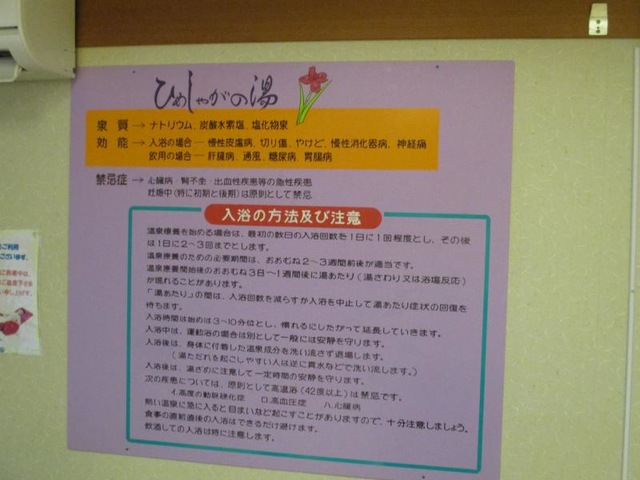 ひめしゃがの湯
泉 質 → ナトリウム、炭酸水素塩、塩化物泉
効 能 → 入浴の場合 ─ 慢性皮膚病、切り傷、やけど、慢性消化器病、神経痛
飲用の場合 ─ 肝臓病、通風、糖尿病、胃腸病
禁忌症 → 心臓病・腎不全・出血性疾患等の急性疾患
妊娠中(特に初期と後期)は原則として禁忌
入浴の方法及び注意
温泉療養を始める場合は、最初の数日の入浴回数を1日に1回程度とし、その後
は1日に2〜3回までとします。
温泉療養のための必要期間は、おおむね2〜3週間前後が適当です。
温泉療養開始後のおおむね3日〜1週間後に湯あたり(湯さわり又は浴湯反応)
が現れることがあります。
「湯あたり」の間は、入浴回数を減らすか入浴を中止して湯あたり症状の回復を
待ちます。
入浴時間は始めは3〜10分位とし、慣れるにしたがって延長していきます。
入浴中は、運動浴の場合は別として一般には安静を守ります。
入浴後は、身体に付着した温泉成分を洗い流さず退場します。
(湯ただれを起こしやすい人は逆に真水などで洗い流します。)
入浴後は、湯ざめに注意して一定時間の安静を守ります。
次の疾患については、原則として高温浴(42度以上)は禁忌です。
イ.高度の動脈硬化症 ロ.高血圧症 ハ.心臓病
熱い温泉に急に入ると目まいなど起こすことがありますので、十分注意しましょう。
食事の直前直後の入浴はできるだけ避けます。
飲酒しての入浴は特に注意します。
ご利用
ございます。